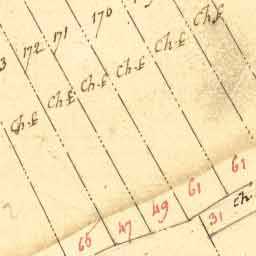 170
171
172
3
Ch. £
Ch. £
Ch. £
Ch. £
Ch. £
Ch. £
61
61
49
47
65
31
Ch.